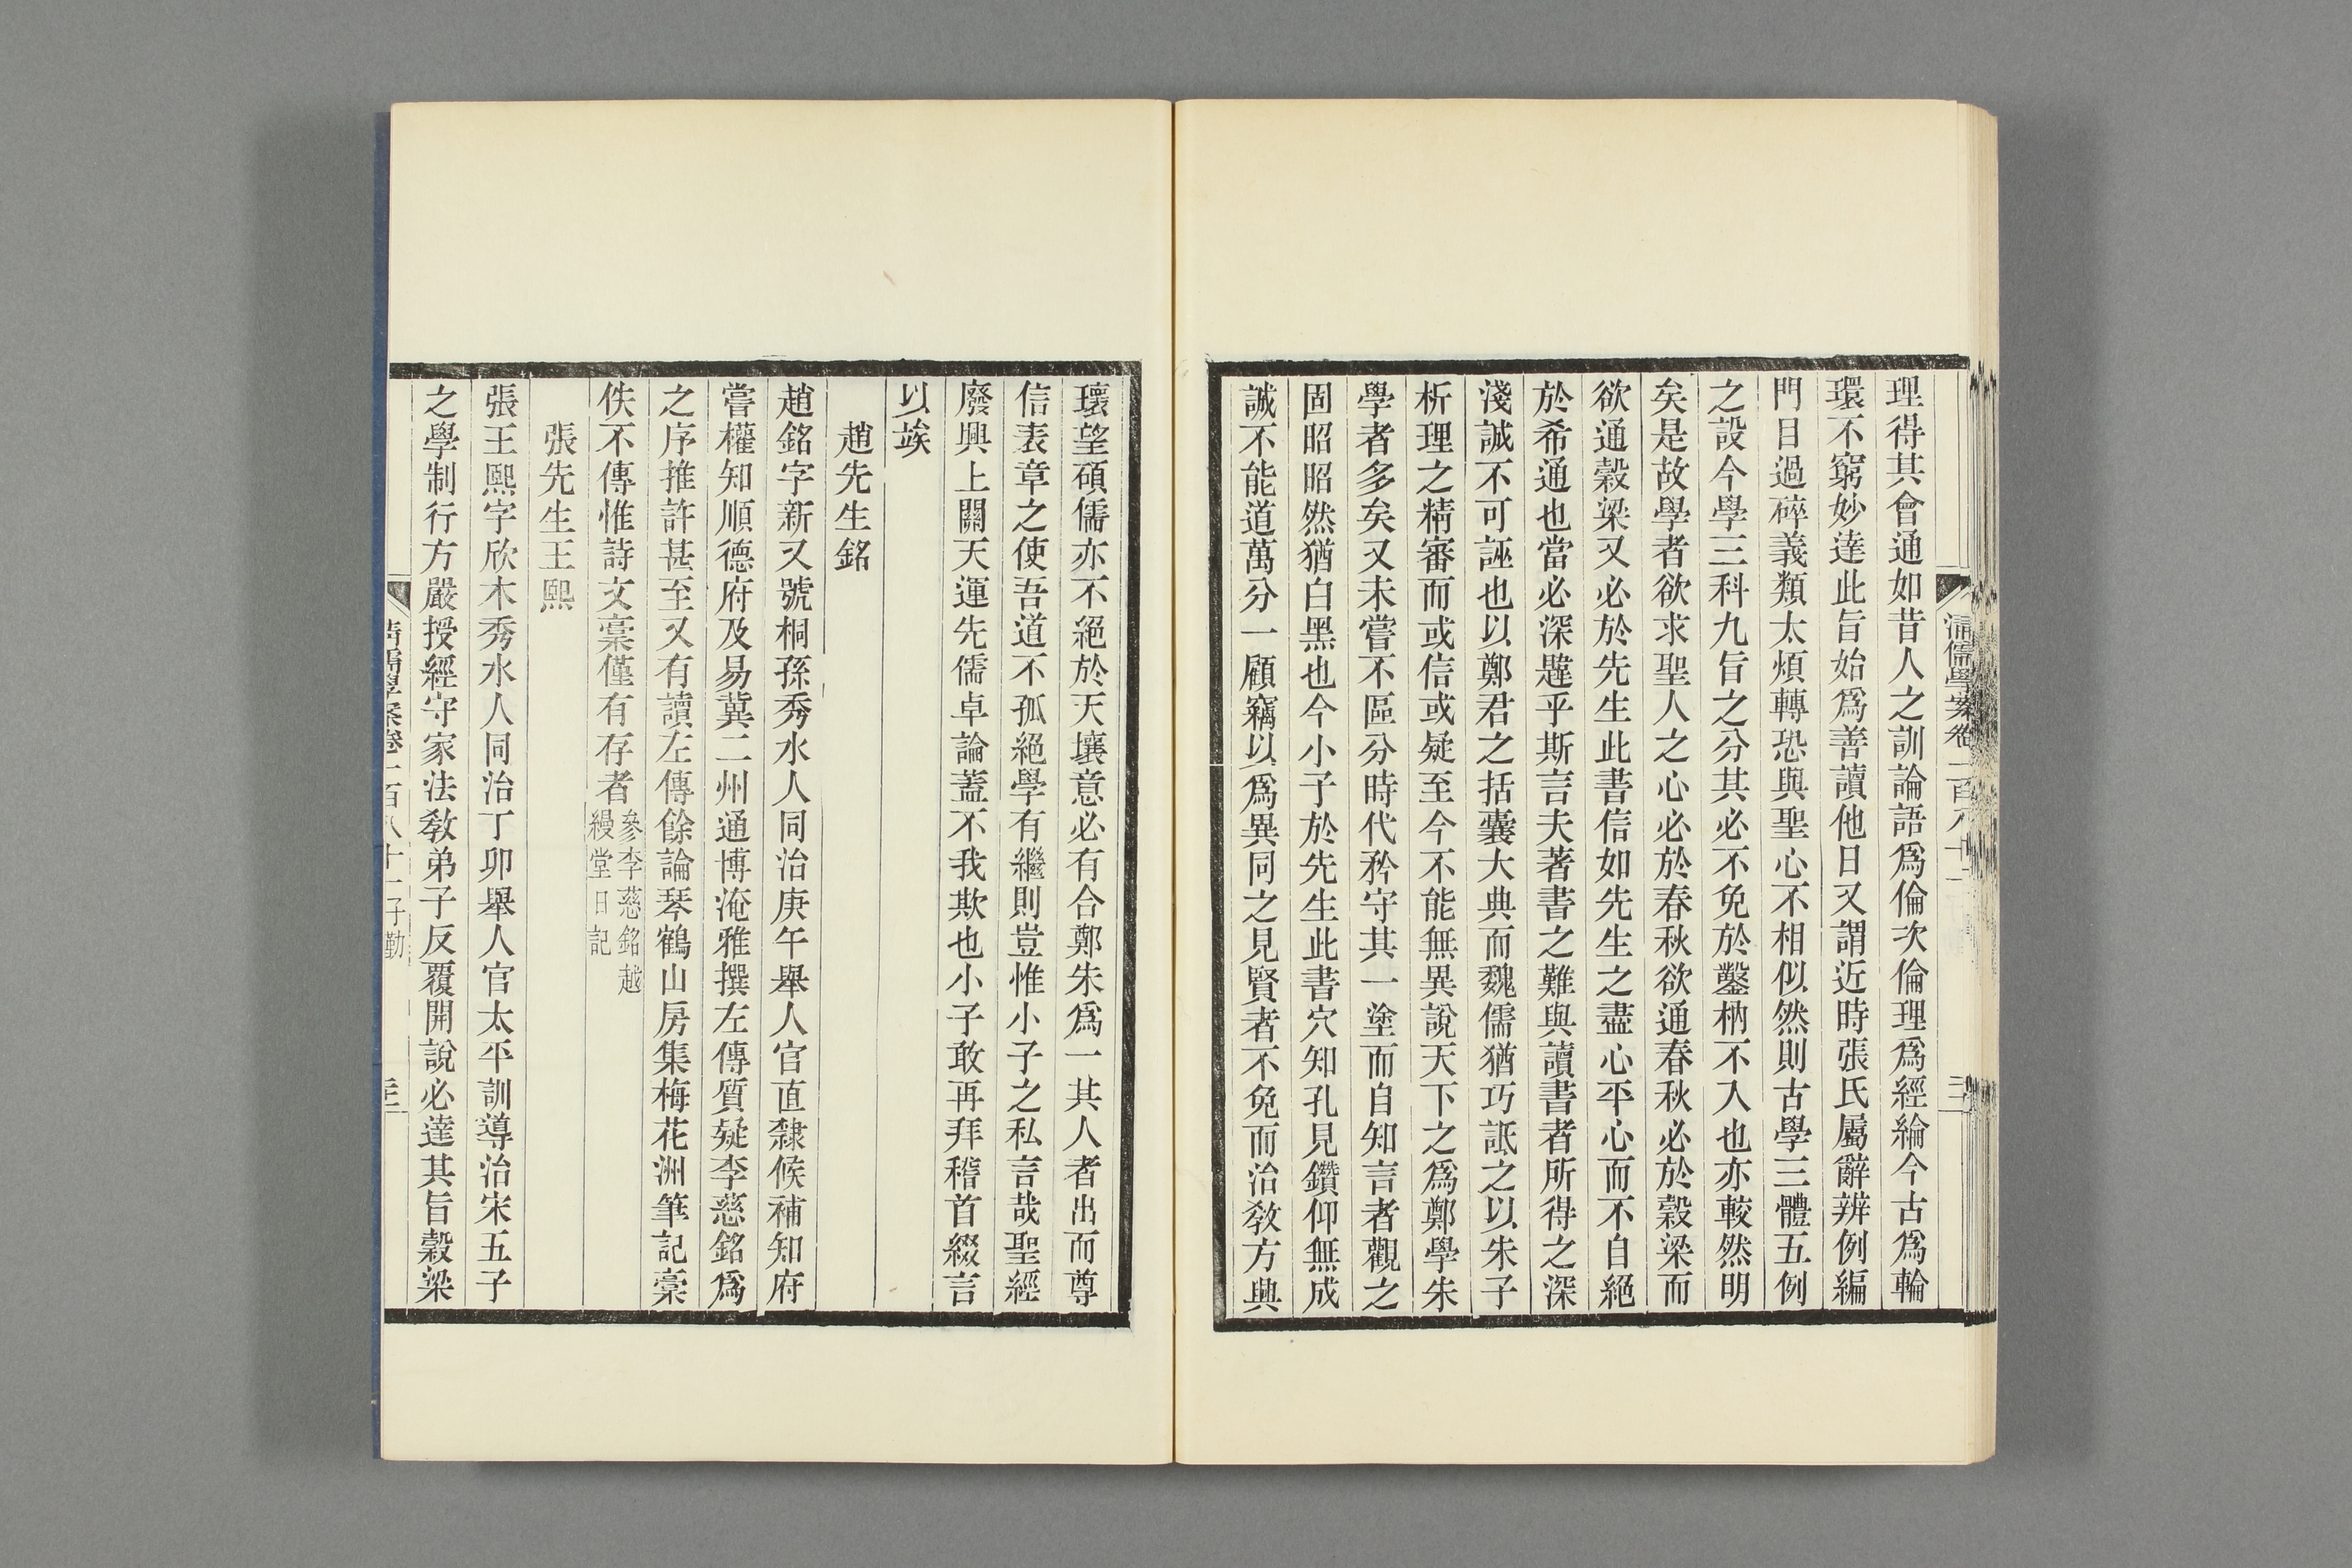 理得其會通如昔人之訓論語爲倫次倫理爲經綸今古爲輪
環不窮妙達此旨始爲善讀他日又謂近時張氏屬辭辨例編
門目過碎義類太煩轉恐與聖心不相似然則古學三體五例
之設今學三科九旨之分其必不免於鑿枘不入也亦較然明
矣是故學者欲求聖人之心必於春秋欲通春秋必於穀梁而
欲通穀梁又必於先生此書信如先生之盡心平心而不自絕
於希通也當必深韙乎斯言夫著書之難與讀書者所得之深
淺誠不可誣也以鄭君之括囊大典而魏儒猶巧詆之以朱子
析理之精審而或信或疑至今不能無異說天下之爲鄭學朱
學者多矣又未嘗不區分時代矜守其一塗而自知言者觀之
固昭昭然猶白黑也今小子於先生此書穴知孔見鑽仰無成
誠不能道萬分一顧竊以爲異同之見賢者不免而治敎方興
瓌望碩儒亦不絕於天壤意必有合鄭朱爲一其人者出而尊
信表章之使吾道不孤絕學有繼則豈惟小子之私言哉聖經
廢興上關天運先儒卓論蓋不我欺也小子敢再拜稽首綴言
以竢
趙先生銘
趙銘字新又號桐孫秀水人同治庚午舉人官直隸候補知府
嘗權知順德府及易冀二州通博淹雅撰左傳質疑李慈銘爲
之序推許甚至又有讀左傳餘論琴鶴山房集梅花洲筆記稾
佚不傳惟詩文稾僅有存者參李慈銘越
縵堂日記
張先生王熙
張王熙字欣木秀水人同治丁卯舉人官太平訓導治宋五子
之學制行方嚴授經守家法敎弟子反覆開說必達其旨穀梁
清儒學案卷一百八十一子勤